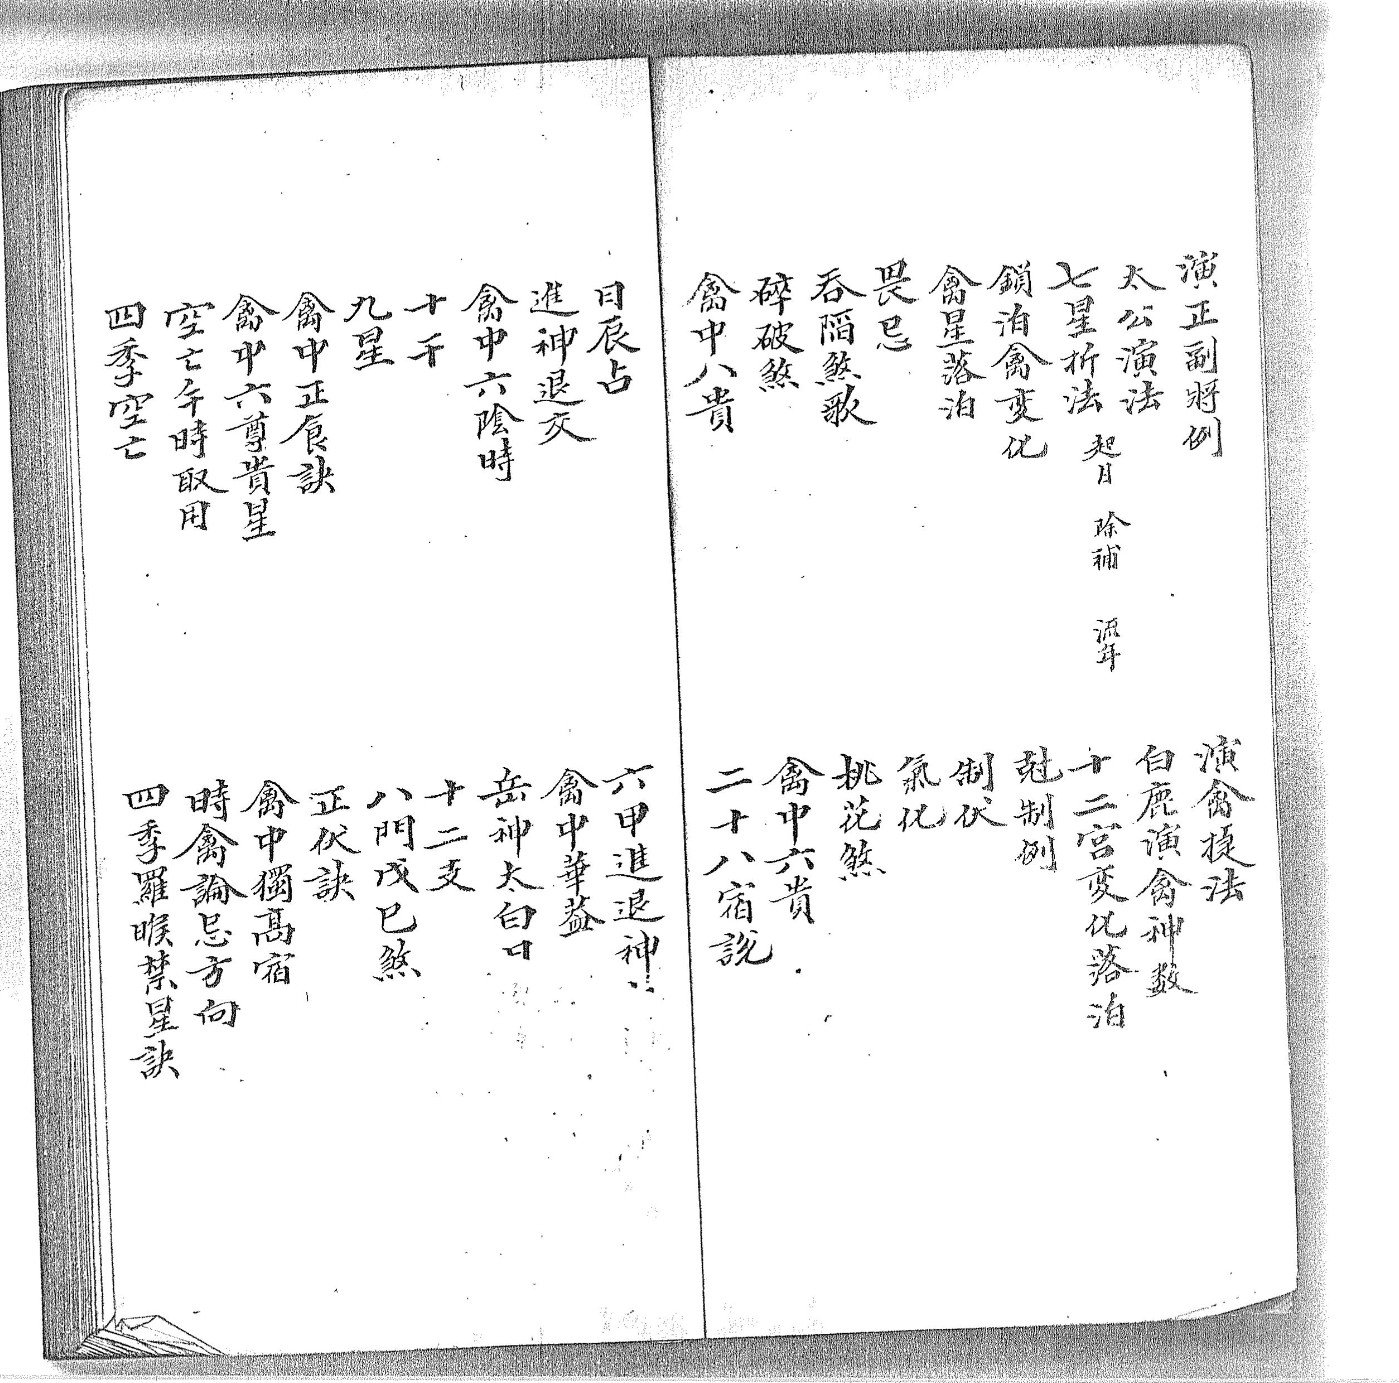 演正副將例
演禽捷法
太公演法
白鹿演禽神数
七星折法 起日 除補 流年
十二宮変化落泊
鎖泊禽変化
尅制例
禽星落泊
制伏
畏忌
氣化
吞陷煞歌
桃花煞
碎破煞
禽中六貴
禽中八貴
二十八宿説
日辰占
六甲進退神
進神退交
禽中華蓋
禽中六陰時
岳神太白
十干
十二支
九星
八門戊己煞
禽中正食訣
正伏訣
禽中六尊貴星
禽中獨高宿
空亡午時取用
時禽論忌方向
四季空亡
四季羅睺禁星訣